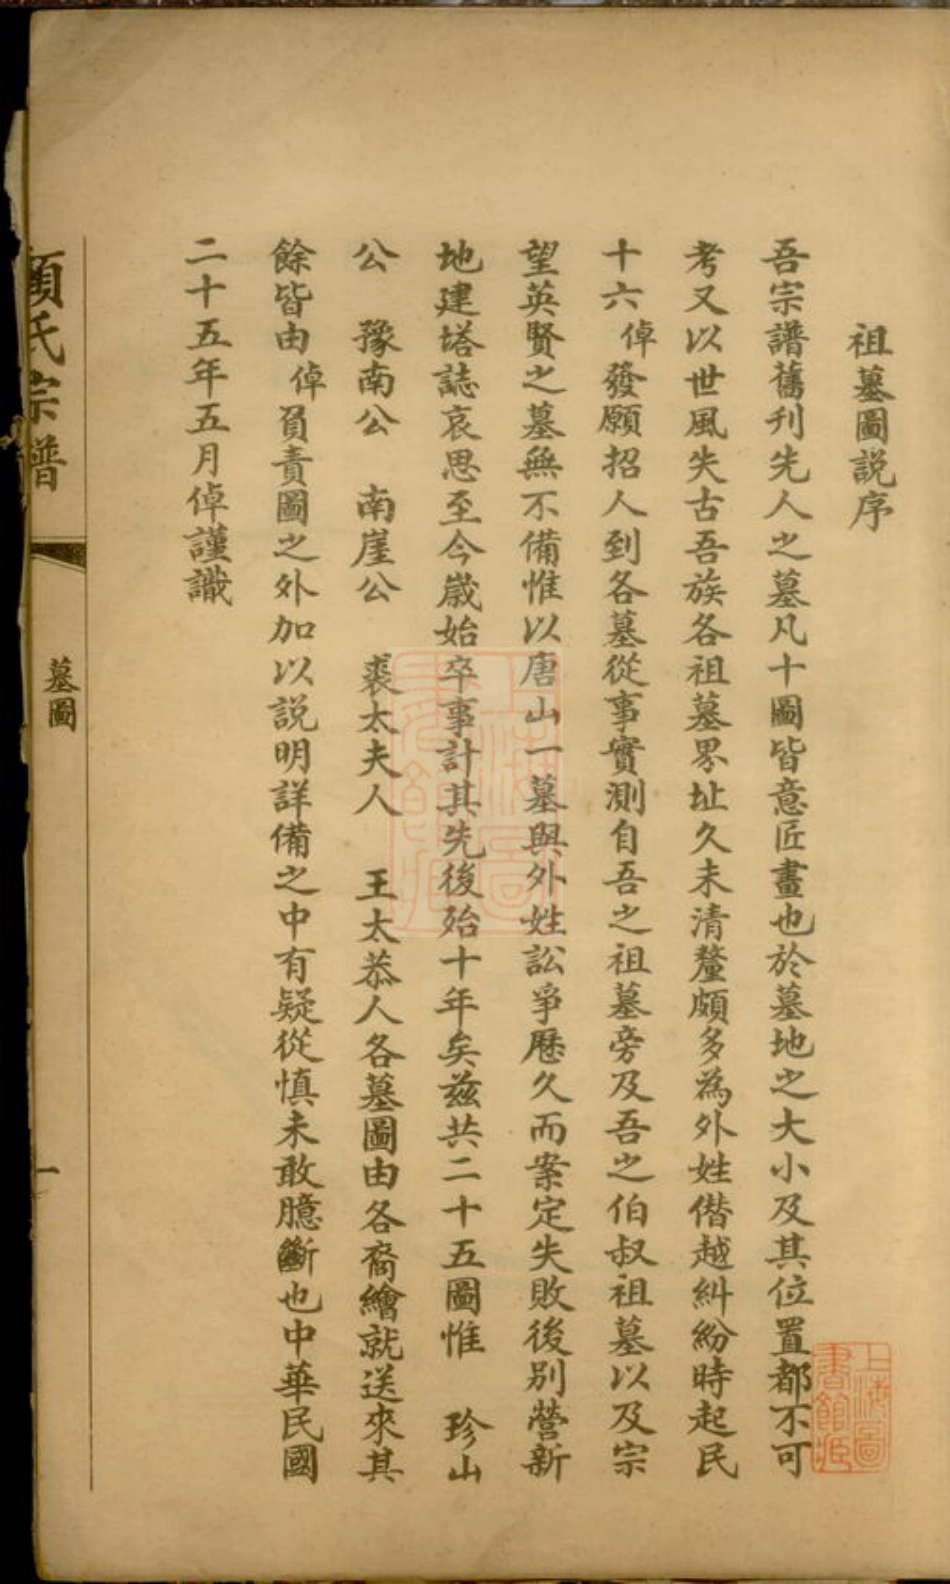 祖墓圖説序
吾宗譜舊刋先人之墓凡十圖皆意匠畫也於墓地之大小及其位置都不可
考又以世風失古吾族各祖墓界址久未清釐頗多為外姓僭越糾紛時起民
十六倬發願招人到各墓從事實測自吾之祖墓旁及吾之伯叔祖墓以及宗
望英賢之墓無不備惟以唐山一墓與外姓訟爭歷久而案定失敗後别營新
地建塔誌哀思至今歲始卒事計其先後殆十年矣兹共二十五圖惟 珍山
公 豫南公 南崖公 裘太夫人 王太恭人各墓圖由各裔繪就送來其
餘皆由倬負責圖之外加以説明詳備之中有疑從慎未敢臆斷也中華民國
二十五年五月倬謹識
氏宗譜
墓圖
一
上海圖
書館藏